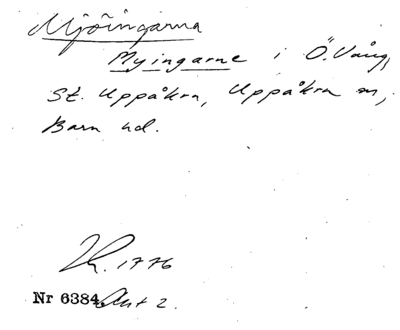 Mjöingarna
Myingarne i Ö. Vång,
St. Uppåkra, Uppåkra sn,
Bara hd.
1776
Nr 6384 Akt 2.